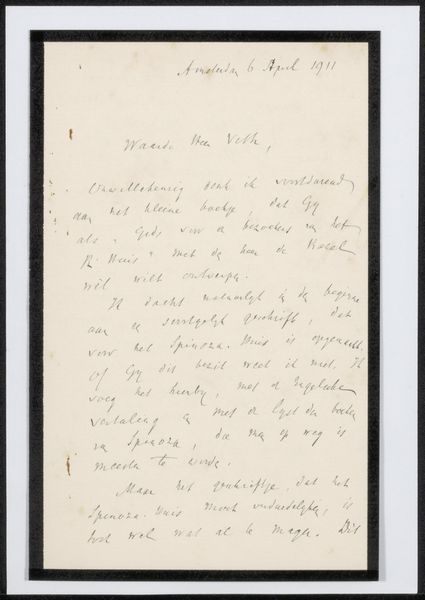 Amsterdam 6 April 1911
Waarde Heer Veth,
Onwillekeurig denk ik voortdurend
aan het kleine boekje, dat Gij
als "Gids voor de bezoekers van het
R. Huis" met den heer de
wel wilt ontwerpen.
Ik dacht natuurlijk in den beginne
aan een soortgelijk geschrift, dat
voor het Spinoza-Huis is opgemaakt.
Of Gij dit bezit weet ik niet. Ik
voeg het hierbij, met de Engelsche
vertaling en met de lijst der boeken
van Spinoza, die men op weg is
meester te worden.
Maar het geschriftje, dat het
Spinoza-Huis moet verduidelijken, is
toch wel wat al te mager. Dit